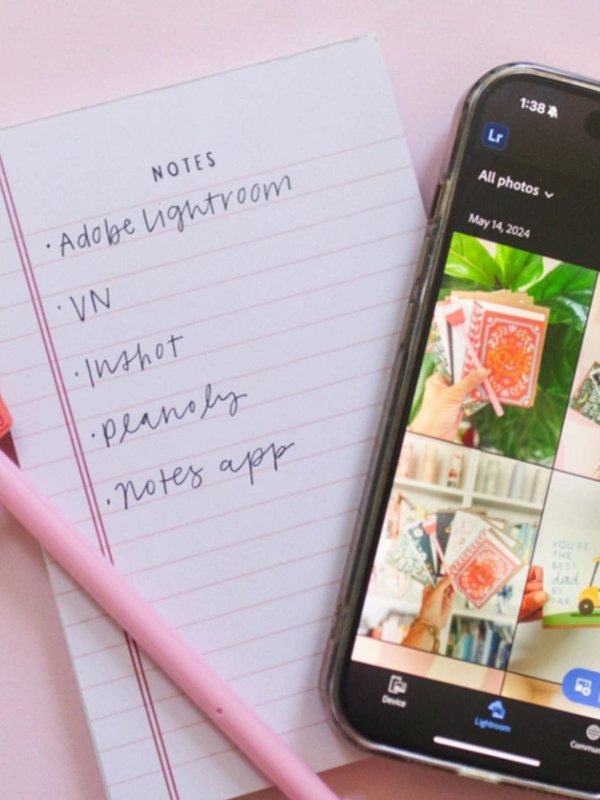 NOTES
· Adobe lightroom
· VN
· Inshot
· planoly
· notes app
1:38
Lr
All photos
May 14, 2024
LOVE
YOU'RE
THE
BEST
dad
BY
PAR
Device
Lightroom
Commun